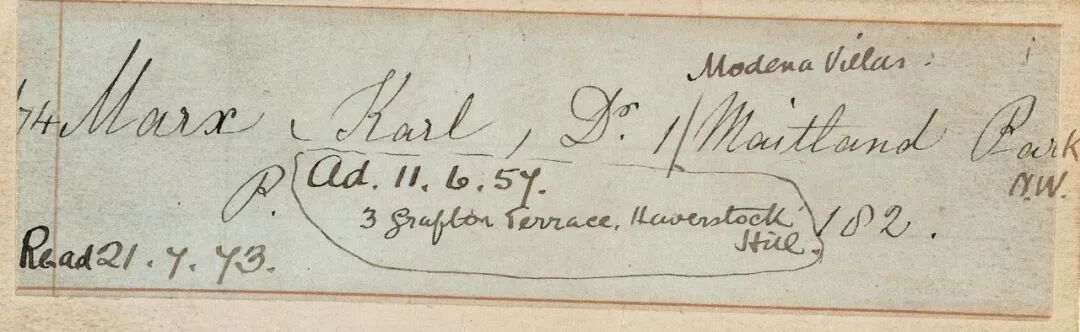 Modena Villas.
74 Marx, Karl, Dr. 1 Maitland Park
N.W.
Ad. 11. 6. 57.
P. 3 Grafton Terrace, Haverstock
Hill. 182.
Read 21. 7. 73.